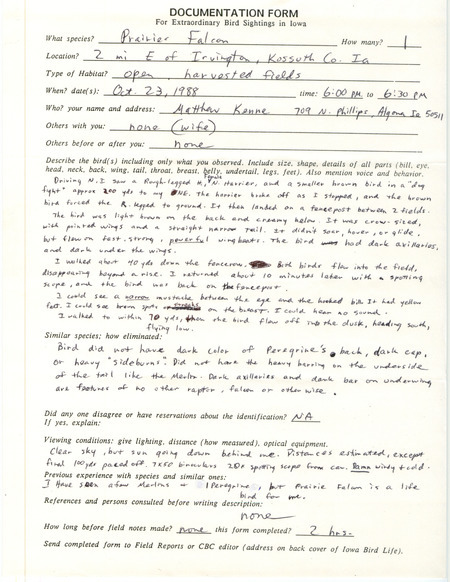 DOCUMENTATION FORM
For Extraordinary Bird Sightings in Iowa
What species? Prairier Falcon How many? 1
Location? 2 mi E of Irvington, Kossuth Co. Ia
Type of Habitat? open, harvested fields
When? date(s): Oct. 23, 1988 time: 6:00 PM to 6:30 PM
Who? your name and address: Matthew Kenne 709 N. Phillips, Algona Ia 50511
Others with you: none (wife)
Others before or after you: none
Describe the bird(s) including only what you observed. Include size, shape, details of all parts (bill, eye,
head, neck, back, wing, tail, throat, breast, belly, undertail, legs, feet). Also mention voice and behavior.
Driving N. I saw a Rough-legged H., female N. Harrier, and a smallerer brown bird in a "dog
fight" approx 200 yds to my NE. The harrier broke off as I stopped, and the brown
bird forced the R. legged to ground. It then landed on a fencepost between 2 fields.
The bird was light brown on the back and creamy below. It was crow-sized,
with pointed wings and a straight narrow tail. It didn't soar, hover, or glide,
but flew on fast, strong, powerful wingbeats. The bird had dark axillaries,
and dark under the wings.
I walked about 40 yds down the fencerow. Bird flew into the field,
disappearing beyond a rise. I returned about 10 minutes later with a spotting
scope, and the bird was back on the fencepost.
I could see a narrow mustache between the eye and the hooked bill. It had yellow
feet. I could see brown spots on the breast. I could hear no sound.
I walked to within 70 yds, then the bird flew off into the dusk, heading south,
flying low.
Similar species; how eliminated:
Bird did not have dark color of Peregrine's back, dark cap,
or heavy "sideburns". Did not have the heavy barring on the underside
of the tail like the Merlin. Dark axillaries and dark bar on underwing
are features of no other raptor, falcon or otherwise.
Did any one disagree or have reservations about the identification? NA
If yes, explain:
Viewing conditions: give lighting, distance (how measured), optical equipment.
Clear sky, but sun going down behind me. Distances estimated, except
final 100 yds paced off. 7x50 binoculars 20x spotting scope from car. windy + cold.
Previous experience with species and similar ones:
I have seen a few Merlins + 1 Peregrine, but Prairie Falcon is a life
bird for me.
References and persons consulted before writing description:
none
How long before field notes made? none this form completed? 2 hrs.
Send completed form to Field Reports or CBC editor (address on back cover of Iowa Bird Life).